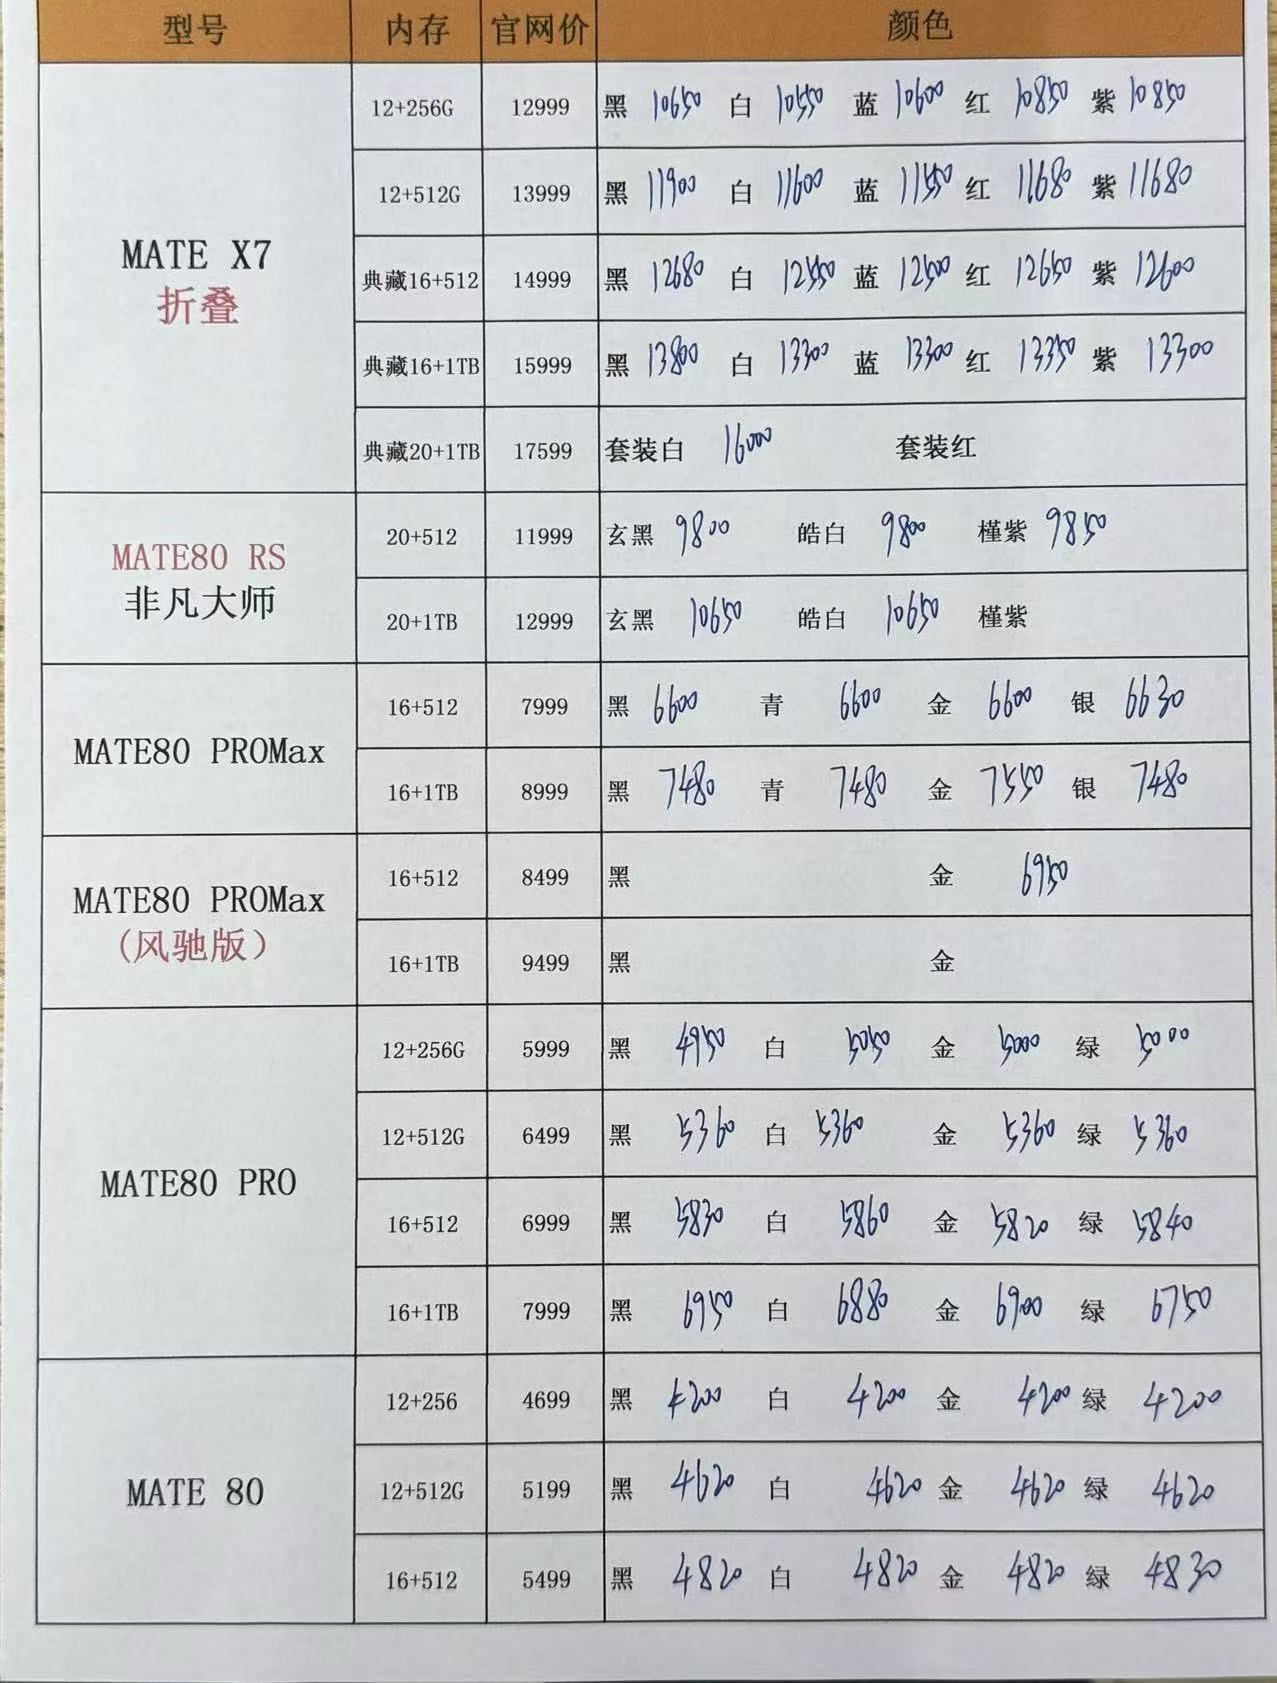 型号 内存 官网价 颜色
MATE X7
折叠
12+256G 12999 黑 10650 白 10550 蓝 10600 红 10850 紫 10850
12+512G 13999 黑 11900 白 11600 蓝 11550 红 11680 紫 11680
典藏16+512 14999 黑 12680 白 12550 蓝 12500 红 12650 紫 12600
典藏16+1TB 15999 黑 13800 白 13300 蓝 13300 红 13350 紫 13300
典藏20+1TB 17599 套装白 16000 套装红
MATE80 RS
非凡大师
20+512 11999 玄黑 9800 皓白 9800 槿紫 9850
20+1TB 12999 玄黑 10650 皓白 10650 槿紫
MATE80 PROMax
16+512 7999 黑 6600 青 6600 金 6600 银 6630
16+1TB 8999 黑 7480 青 7480 金 7550 银 7480
MATE80 PROMax
(风驰版)
16+512 8499 黑 金 6950
16+1TB 9499 黑 金
MATE80 PRO
12+256G 5999 黑 4950 白 5050 金 5000 绿 5000
12+512G 6499 黑 5360 白 5360 金 5360 绿 5360
16+512 6999 黑 5830 白 5860 金 5820 绿 5840
16+1TB 7999 黑 6950 白 6880 金 6900 绿 6750
MATE 80
12+256 4699 黑 4200 白 4200 金 4200 绿 4200
12+512G 5199 黑 4620 白 4620 金 4620 绿 4620
16+512 5499 黑 4820 白 4820 金 4820 绿 4830